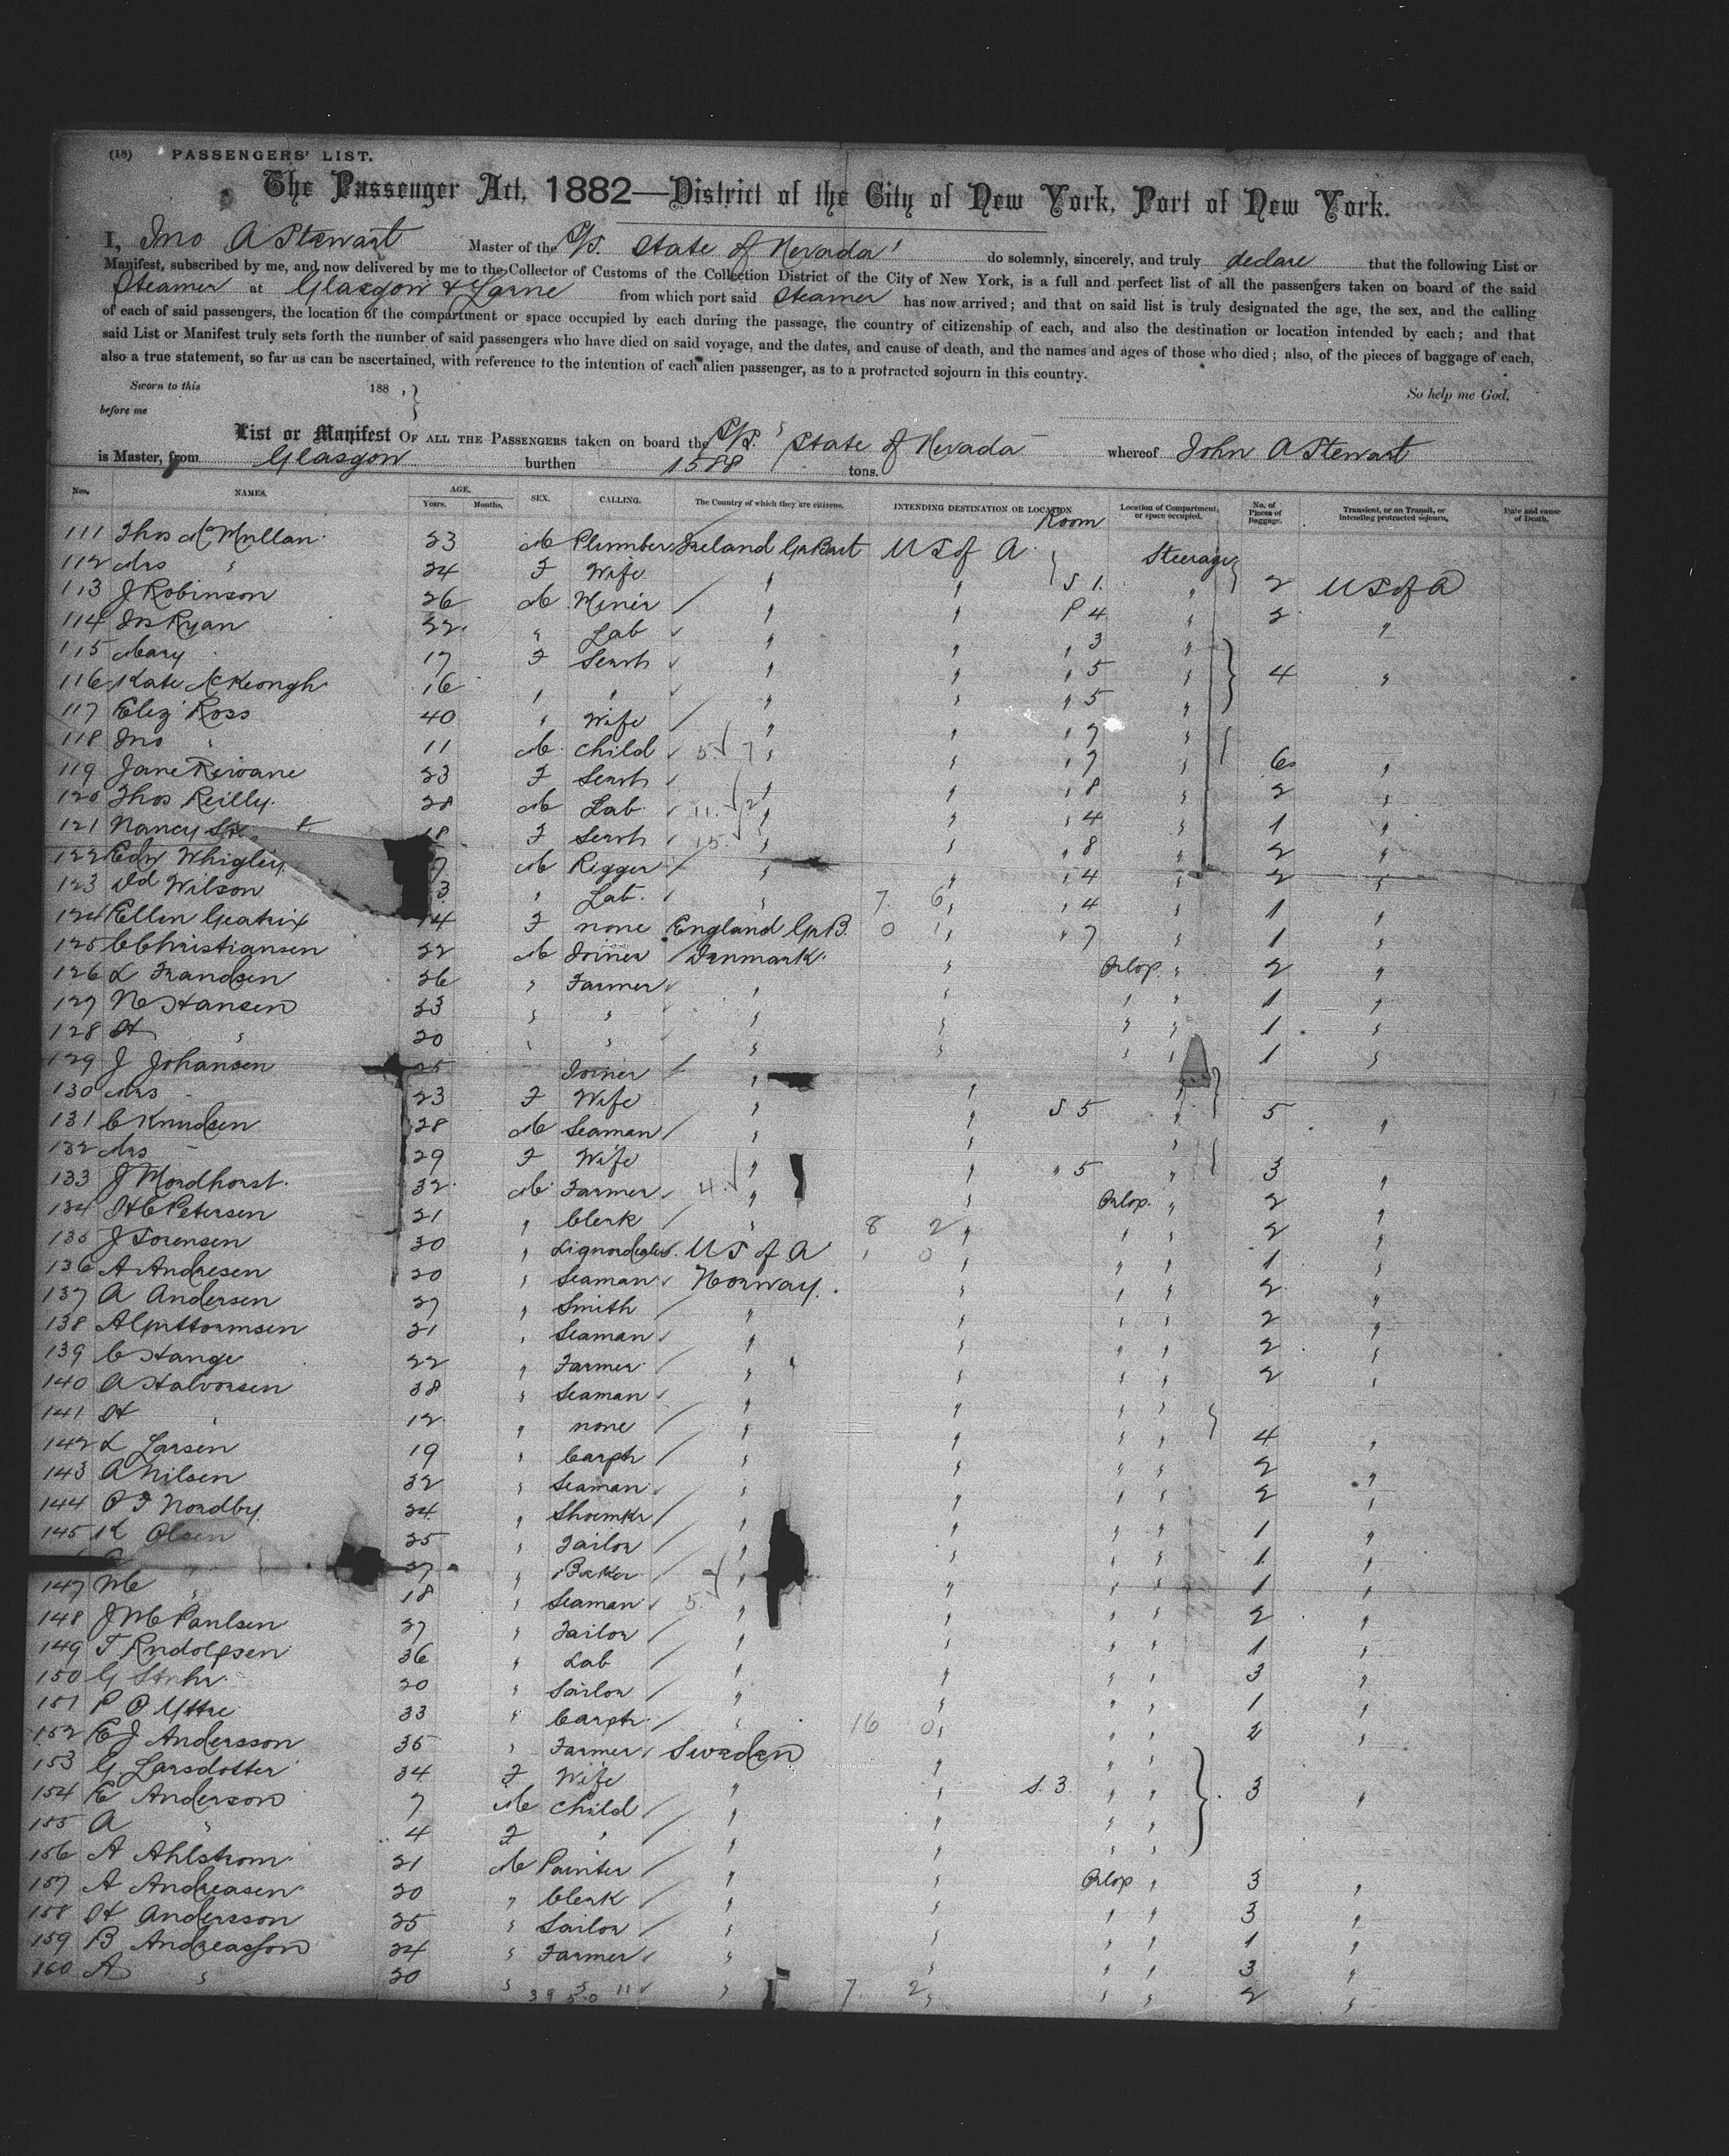 (18) PASSENGERS' LIST.
The Passenger Act, 1882—District of the City of New York, Port of New York.
I, Jno A Stewart Master of the S/S. State of Nevada' do solemnly, sincerely, and truly declare that the following List or
Manifest, subscribed by me, and now delivered by me to the Collector of Customs of the Collection District of the City of New York, is a full and perfect list of all the passengers taken on board of the said
Steamer at Glasgow & Larne from which port said Steamer has now arrived; and that on said list is truly designated the age, the sex, and the calling
of each of said passengers, the location of the compartment or space occupied by each during the passage, the country of citizenship of each, and also the destination or location intended by each; and that
said List or Manifest truly sets forth the number of said passengers who have died on said voyage, and the dates, and cause of death, and the names and ages of those who died; also, of the pieces of baggage of each,
also a true statement, so far as can be ascertained, with reference to the intention of each alien passenger, as to a protracted sojourn in this country.
Sworn to this 188 , } So help me God,
before me
List or Manifest OF ALL THE PASSENGERS taken on board the S/S. ' State of Nevada whereof John A Stewart
is Master, from Glasgow burthen 1588 tons.
Nos. NAMES. AGE. Years. Months. SEX. CALLING. The Country of which they are citizens. INTENDING DESTINATION OR LOCATION Room Location of Compartment, or space occupied. No. of Pieces of Baggage. Transient, or on Transit, or intending protracted sojourn. Date and cause of Death.
111 Thos McMullan 23 M Plumber Ireland Gr Brit US of A Steerage
112 Mrs " 24 F Wife " " S 1. " 2 US of A
113 J Robinson 26 M Miner " " P 4 " 2 "
114 Jno Ryan 22 " Lab " " " 3 "
115 Mary 17 F Servt " " " 5 " 4 "
116 Kate McKeongh 16 " " " " " 5 "
117 Eliz Ross 40 " Wife " " " 7 "
118 Jno " 11 M child 5 7 " " " 7 " 6 "
119 Jane 23 F Servt " " " 8 " 2 "
120 Thos Reilly 28 M Lab 11 2 " " " 4 " 1 "
121 Nancy 18 F Servt 15 " " " 8 " 2 "
122 Edw Whigley 7 M Rigger " " " 4 " 2 "
123 Wilson 3 " Lab " 7 6 " " 4 " 1 "
124 Ellen Geatrix 14 F none England Gr B. 0 1 " " 7 " 1 "
125 C Christiansen 22 M Joiner Denmark " Orlop " 2 "
126 L Frandsen 26 " Farmer " " " " 1 "
127 N Hansen 23 " " " " " " 1 "
128 H " 20 " " " " " " 1 "
129 J Johansen 25 Joiner " "
130 Mrs 23 F Wife " " S 5 " 5 "
131 C Knudsen 28 M Seaman " " "
132 Mrs 29 F Wife " " " 5 " 3 "
133 J Mordhorst 32 M Farmer 4 " " Orlop " 2 "
134 H C Petersen 21 " Clerk " 8 2 " " " 2 "
135 J Sorensen 30 " Liquordealer US of A " 0 " " " 1 "
136 A Andresen 20 " Seaman Norway " " " 2 "
137 A Andersen 27 " Smith " " " " 2 "
138 A Guttormsen 21 " Seaman " " " " 2 "
139 C Hange 22 " Farmer " " " " 2 "
140 A Halvorsen 38 " Seaman " " " "
141 H " 12 " none " " " " 4 "
142 L Larsen 19 " Carptr " " " " 2 "
143 A Nilsen 32 " Seaman " " " " 2 "
144 O F Nordby 24 " Shoemkr " " " " 1 "
145 K Olsen 25 " Tailor " " " " 1 "
" 27 " Baker " " " " 1 "
147 " 18 " Seaman 5 " " " " 2 "
148 J M Paulsen 27 " Tailor " " " " 1 "
149 T Rudolfsen 36 " Lab " " " " 3 "
150 G 20 " Sailor " " " " 1 "
151 P O Yttre 33 " Carptr " 16 0 " " " 2 "
152 E J Andersson 35 " Farmer Sweden " " "
153 G Larsdotter 34 F Wife " " S. 3 " " 3 "
154 E Anderson 7 M Child " " " "
155 A " 4 F " " " " "
156 A Ahlstrom 21 M Painter " " Orlop " 3 "
157 A Andreasen 20 " Clerk " " " " 3 "
158 H Andersson 25 " Sailor " " " " 1 "
159 B Andreasson 24 " Farmer " " " " 3 "
160 A " 20 " " " 7 2 " " " 2 "